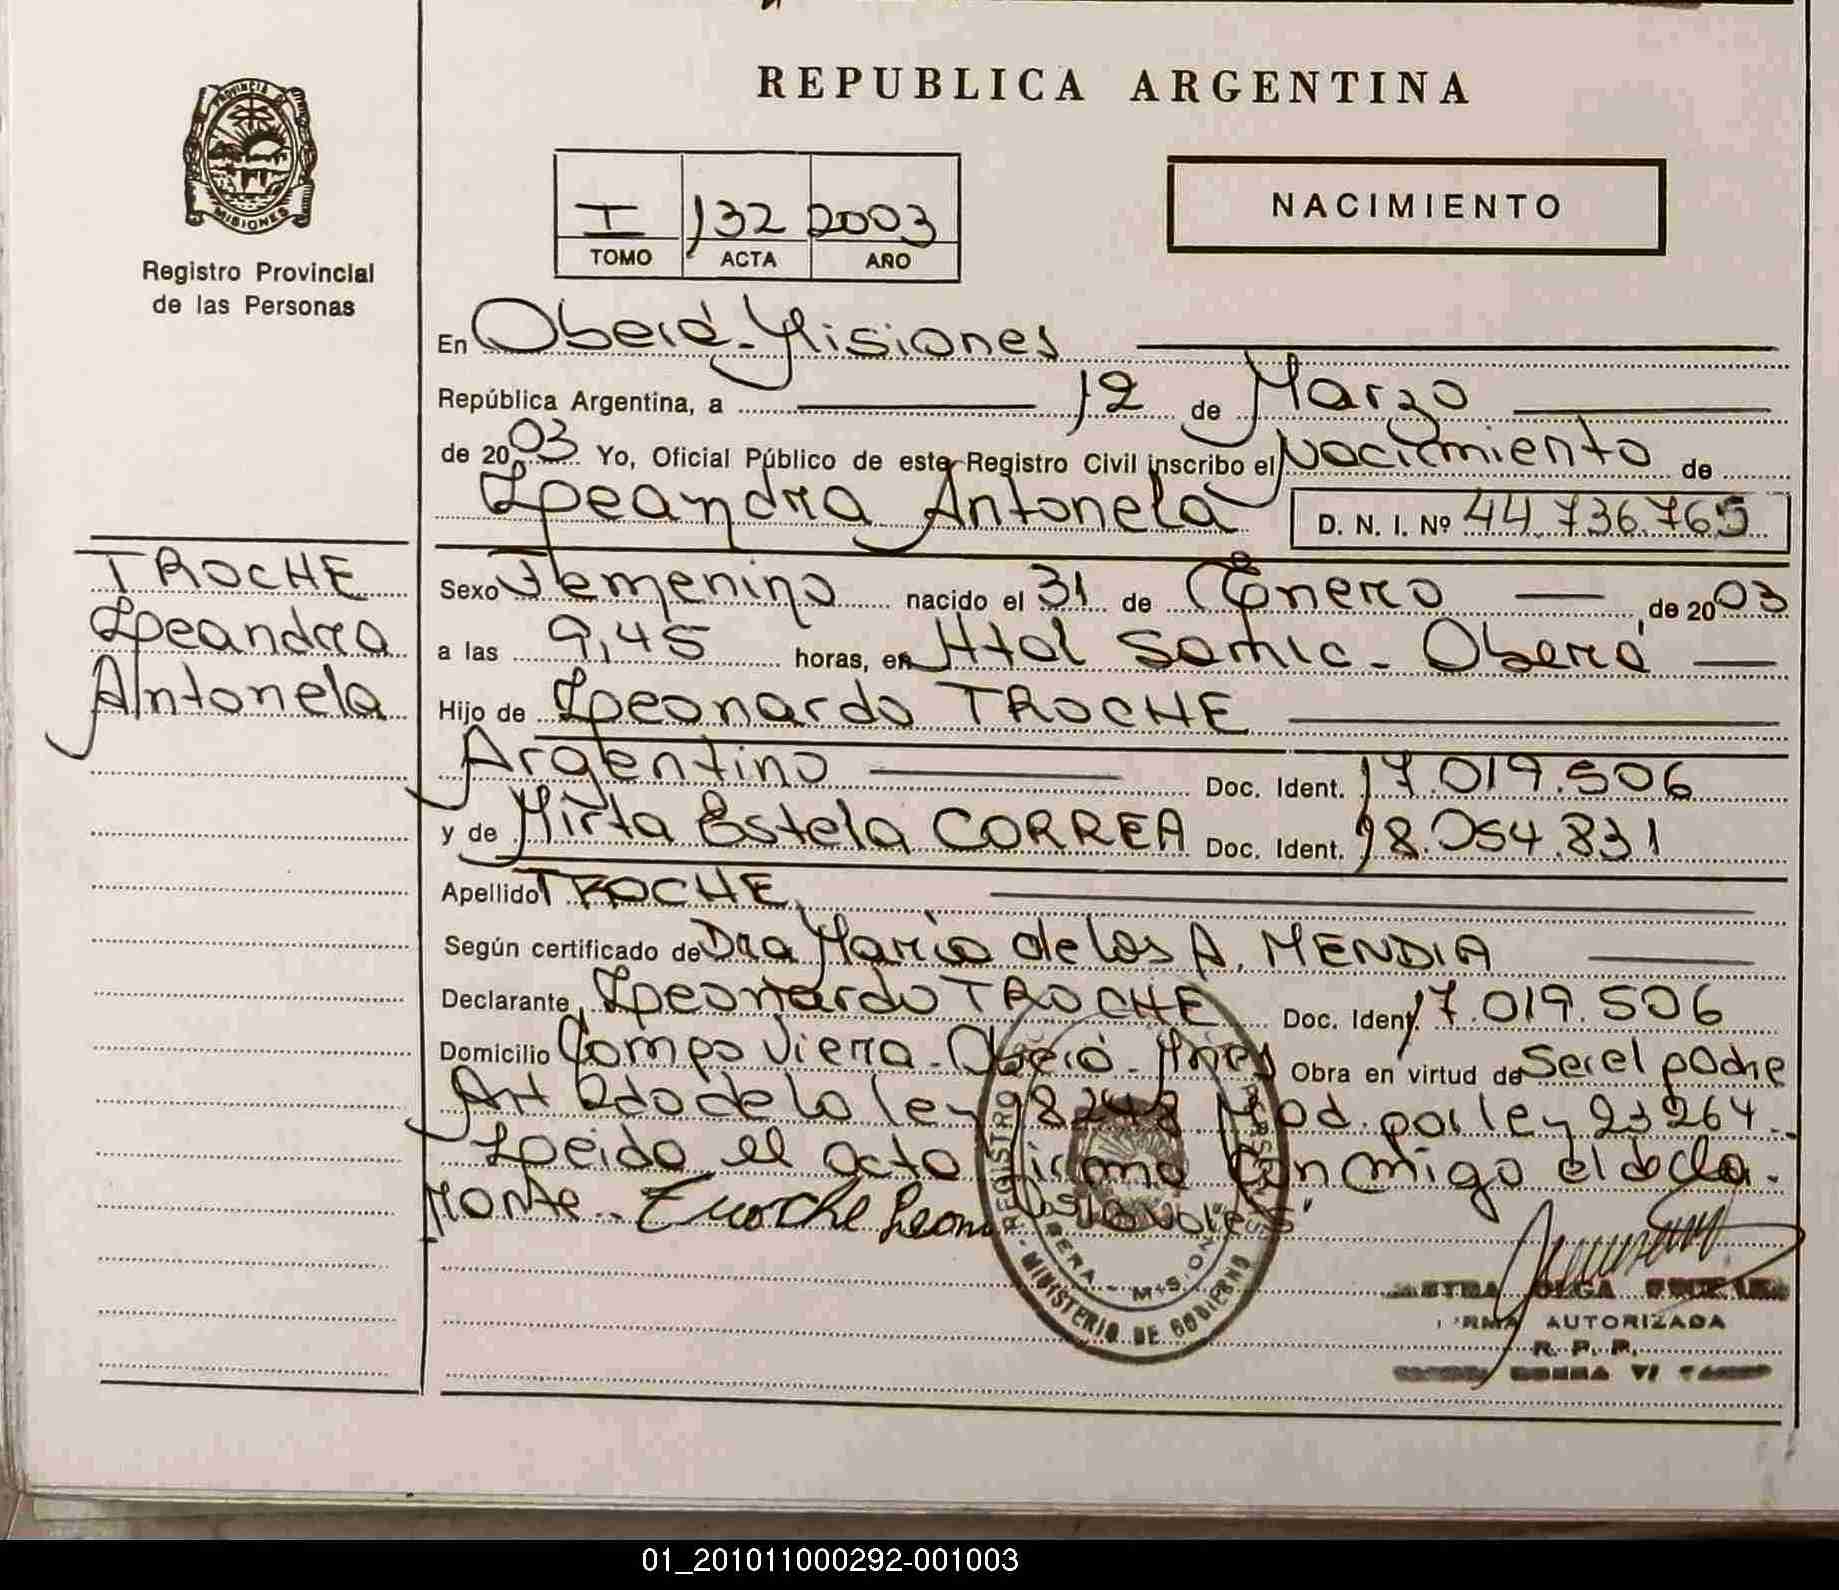 REPUBLICA ARGENTINA
PROVINCIA DE MISIONES
Registro Provincial
de las Personas
I 132 2003
TOMO ACTA AÑO
NACIMIENTO
En Oberá - Misiones
República Argentina, a 12 de Marzo
de 2003 Yo, Oficial Público de este Registro Civil inscribo el Nacimiento de
Leandra Antonela D. N. I. Nº 44.736.765
TROCHE
Leandra
Antonela
Sexo Femenino nacido el 31 de Enero de 2003
a las 9,45 horas, en Htal Samic - Oberá
Hijo de Leonardo TROCHE
Argentino Doc. Ident. 17.019.506
y de Mirta Estela CORREA Doc. Ident. 18.054.831
Apellido TROCHE
Según certificado de Dra Maria de los A. MENDIA
Declarante Leonardo TROCHE Doc. Ident. 17.019.506
Domicilio Campo Viera - Oberá - Mnes Obra en virtud de Ser el padre
Art 2do de la ley 18248 Mod. por ley 23264.
Leido el acta firma conmigo el decla-
rante. Troche
REGISTRO
OBERA - MISIONES
MINISTERIO DE GOBIERNO
OLGA
FIRMA AUTORIZADA
R. P. P.
01_201011000292-001003